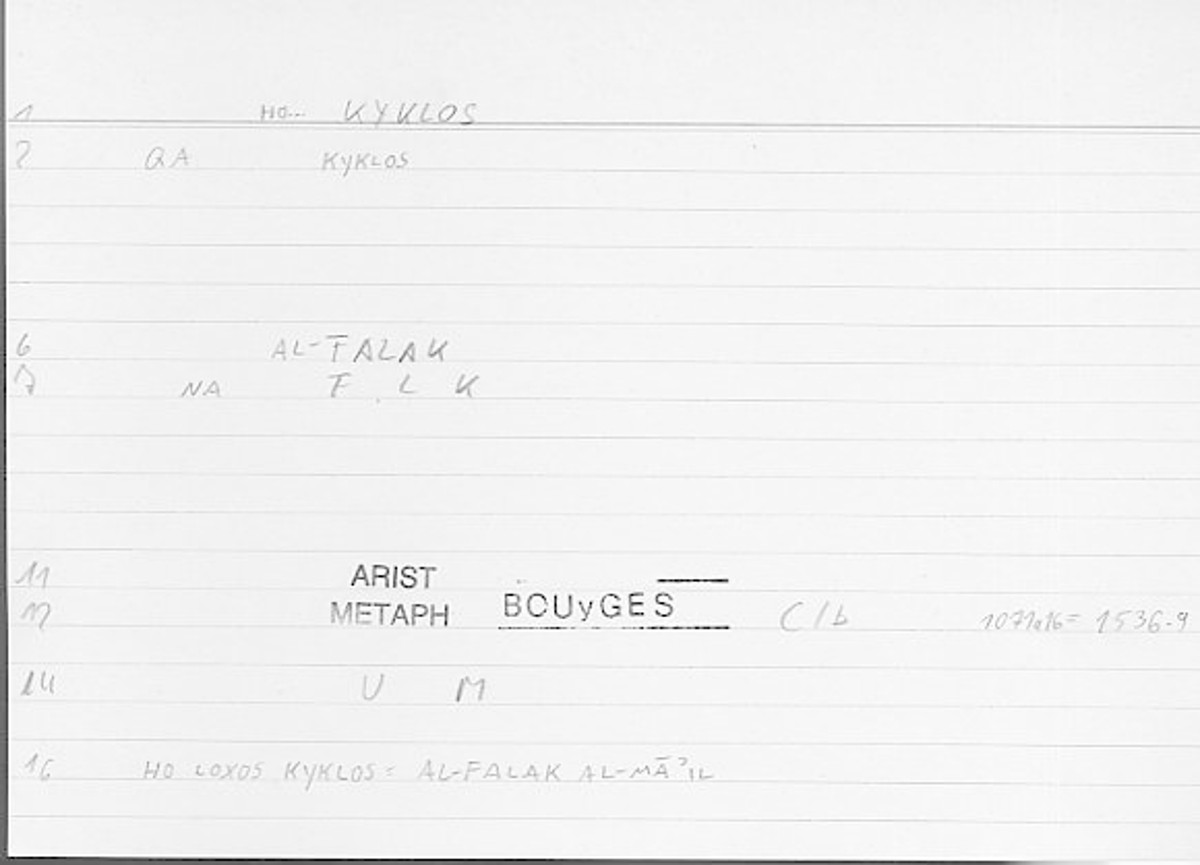 1 HO... KYKLOS
2 QA KYKLOS
6 AL-FALAK
7 NA F . L K
11 ARIST
12 METAPH BOUyGES C/b 1071a16= 1536.9
14 U M
16 HO LOXOS KYKLOS = AL-FALAK AL-MĀʾIL